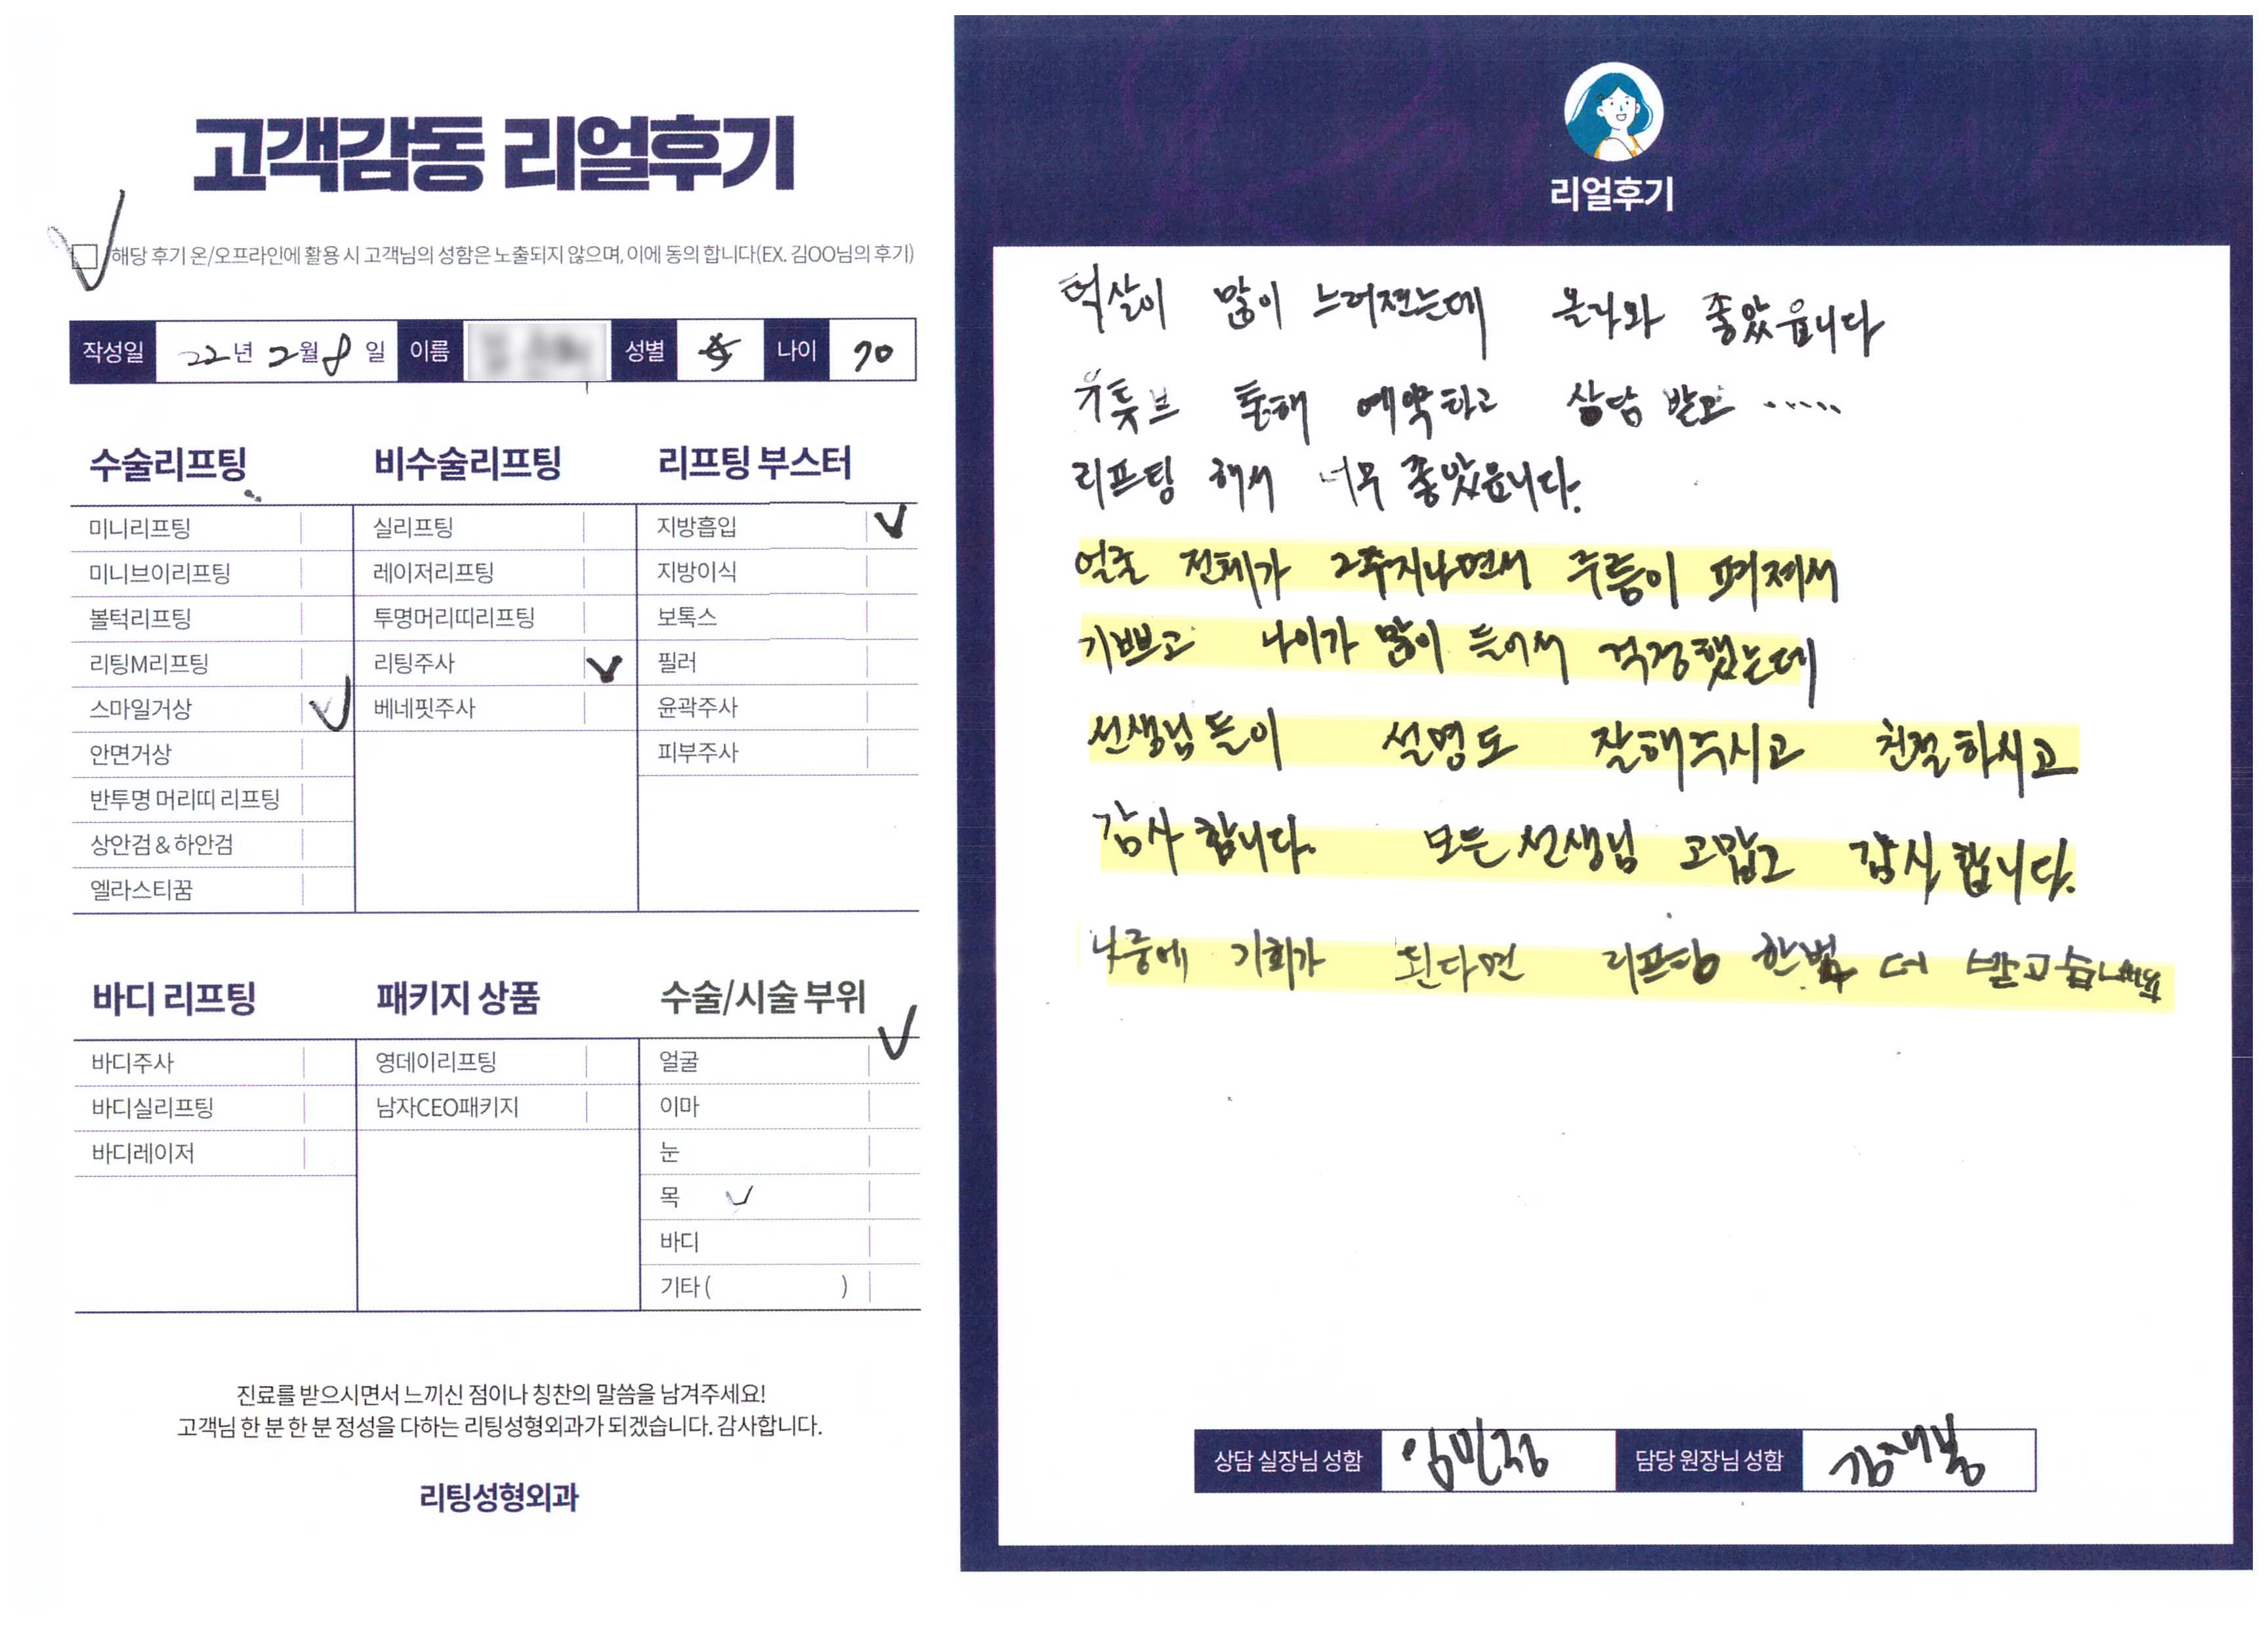 고객감동 리얼후기
해당 후기 온/오프라인에 활용 시 고객님의 성함은 노출되지 않으며, 이에 동의 합니다(EX. 김OO님의 후기)
작성일 22년 2월 8일 이름 성별 나이 70
수술리프팅
미니리프팅
미니브이리프팅
볼턱리프팅
리팅M리프팅
스마일거상
안면거상
반투명 머리띠 리프팅
상안검 & 하안검
엘라스티꿈
비수술리프팅
실리프팅
레이저리프팅
투명머리띠리프팅
리팅주사
베네핏주사
리프팅 부스터
지방흡입
지방이식
보톡스
필러
윤곽주사
피부주사
바디 리프팅
바디주사
바디실리프팅
바디레이저
패키지 상품
영데이리프팅
남자CEO패키지
수술/시술 부위
얼굴
이마
눈
목
바디
기타 ( )
진료를 받으시면서 느끼신 점이나 칭찬의 말씀을 남겨주세요!
고객님 한 분 한 분 정성을 다하는 리팅성형외과가 되겠습니다. 감사합니다.
리팅성형외과
리얼후기
턱살이 많이 느러젔는데 올라와 좋았읍니다
유튜브 통해 예약하고 상담 받고 .....
리프팅 해서 너무 좋았읍니다.
얼굴 전체가 2주지나면서 주름이 펴져서
기쁘고 나이가 많이 들어서 걱정했는데
선생님들이 설명도 잘해주시고 친절하시고
감사합니다. 모든 선생님 고맙고 감사합니다.
나중에 기회가 된다면 리프팅 한번 더 받고
상담 실장님 성함 임민정 담당 원장님 성함 김재봉